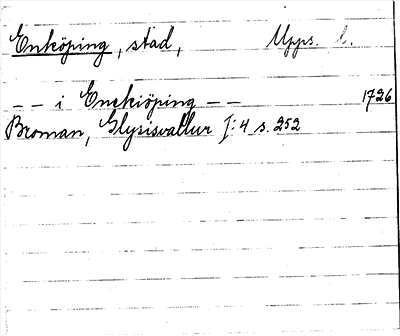 Enköping, stad, Upps. l.
-- i Enckiöping -- 1726
Broman, Glysisvallur I:4 s. 252